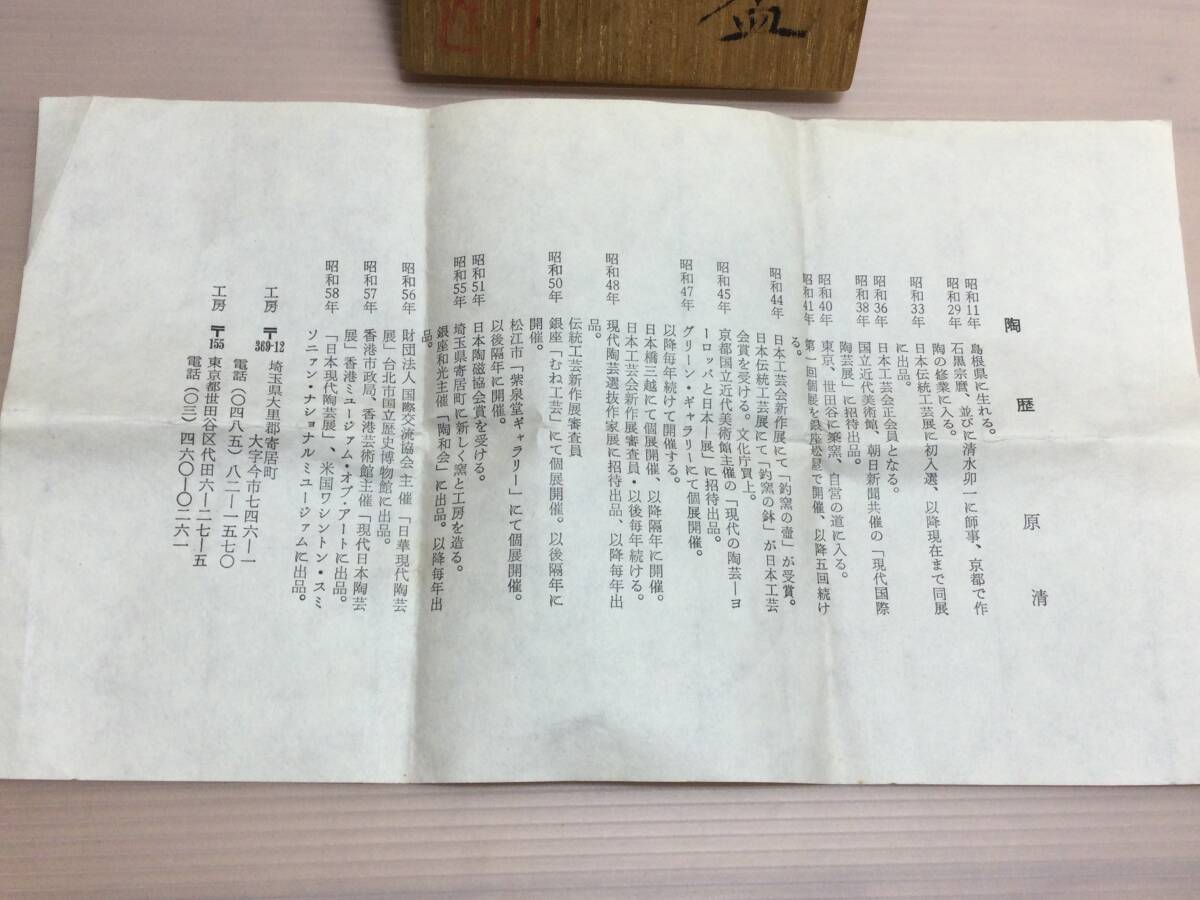 盃
陶歴
原清
昭和11年 島根県に生れる。
昭和29年 石黒宗麿、並びに清水卯一に師事、京都で作
陶の修業に入る。
昭和33年 日本伝統工芸展に初入選、以降現在まで同展
に出品。
昭和36年 日本工芸会正会員となる。
昭和38年 国立近代美術館、朝日新聞共催の「現代国際
陶芸展」に招待出品。
昭和40年 東京、世田谷に築窯、自営の道に入る。
昭和41年 第一回個展を銀座松屋で開催、以降五回続け
る。
昭和44年 日本工芸会新作展にて「釣窯の壷」が受賞。
日本伝統工芸展にて「釣窯の鉢」が日本工芸
会賞を受ける。文化庁買上。
昭和45年 京都国立近代美術館主催の「現代の陶芸―ヨ
ーロッパと日本―展」に招待出品。
昭和47年 グリーン・ギャラリーにて個展開催。
以降毎年続けて開催する。
日本橋三越にて個展開催、以降隔年に開催。
日本工芸会新作展審査員・以後毎年続ける。
昭和48年 現代陶芸選抜作家展に招待出品、以降毎年出
品。
伝統工芸新作展審査員
昭和50年 銀座「むね工芸」にて個展開催。以後隔年に
開催。
松江市「紫泉堂ギャラリー」にて個展開催。
以後隔年に開催。
昭和51年 日本陶磁協会賞を受ける。
昭和55年 埼玉県寄居町に新しく窯と工房を造る。
銀座和光主催「陶和会」に出品。以降毎年出
品。
昭和56年 財団法人国際交流協会主催「日華現代陶芸
展」台北市国立歴史博物館に出品。
昭和57年 香港市政局、香港芸術館主催「現代日本陶芸
展」香港ミュージァム・オブ・アートに出品。
昭和58年 「日本現代陶芸展」、米国ワシントン・スミ
ソニァン・ナショナルミュージァムに出品。
工房 〒369-12 埼玉県大里郡寄居町
大字今市七四六―一
電話(〇四八五)八二―一五七〇
工房 〒155 東京都世田谷区代田六―二七―五
電話(〇三)四六〇―〇二六一